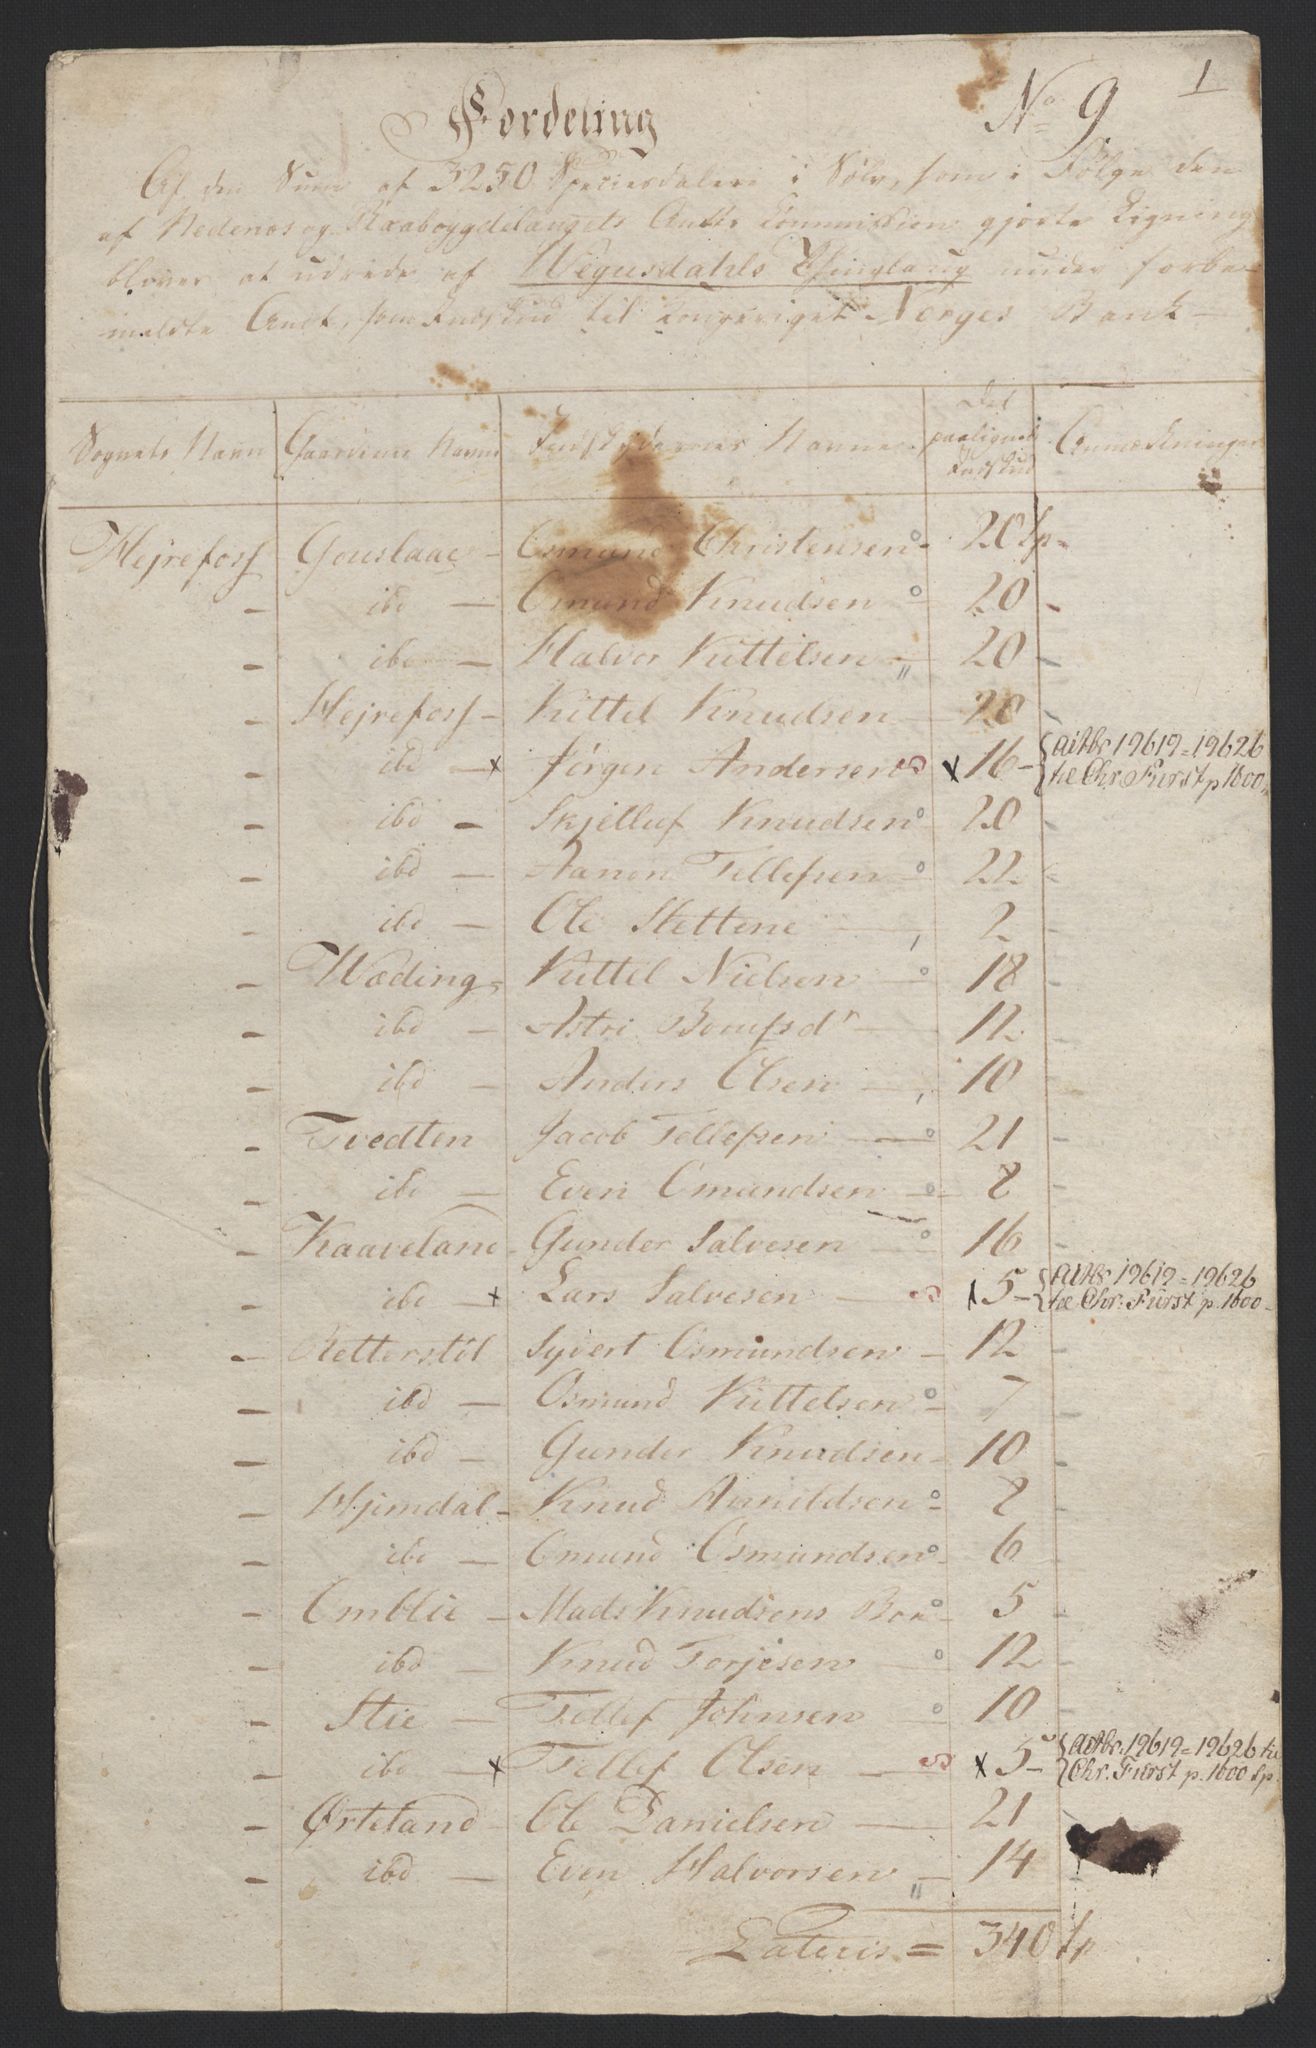 1
No 9
Fordeling
Af den Sum af 3250 Speciesdalere i Sølv, som i Følge den
af Nedenæs og Raabøygdelaugets Amts Commission gjorte Ligning
bliver at udrede af Wegusdahls Thinglaug under forbe-
meldte Amt, som Indskud til Kongeriget Norges Bank
Sognets Navn Gaardenes Navne Indskydernes Navne Det paalignede Indskud Anmærkninger
Hejrefoss Gouslaae - Osmund Christensen 20 Sp
- ibd - Omund Knudsen 20 -
- ibd - Halvor Kittelsen 20 -
- Hejrefoss - Kittel Knudsen 20 -
- ibd - x Jørgen Andersen x 16 - { actbr. 19619 = 19626 til Chr. Fürst p. 1600
- ibd - Skjelluf Knudsen 20 -
- ibd - Aanon Tellefsen 22 -
- ibd - Ole Stettene 2 -
- Wæding - Kittel Nielsen 18 -
- ibd - Astri Bomfsdr 12 -
- ibd - Anders Olsen 10 -
- Tvedten Jacob Tellefsen 21 -
- ibd - Even Omundsen 8 -
- Kaaveland - Gunder Salvesen 16 -
- ibd - x Lars Salvesen x 5 - { actbr. 19619 = 19626 til Chr. Fürst p. 1600 -
- Retterstøl Syvert Osmundsen 12 -
- ibd - Osmund Kittelsen 7 -
- ibd - Gunder Knudsen 10 -
- Hjimdal - Knud Aanildsen 8 -
- ibd - Omund Osmundsen 6 -
- Omblie - Mads Knudsens Boe 5 -
- ibd - Knud Torjesen 12 -
- Stie - Tellef Johnsen 10 -
- ibd - x Tellef Olsen x 5 - { actbr. 19619 = 19626 til Chr. Fürst p. 1600 Sp.
- Ørteland - Ole Danielsen 21 -
- ibd - Even Halvorsen 14 -
Lateris = 340 Sp